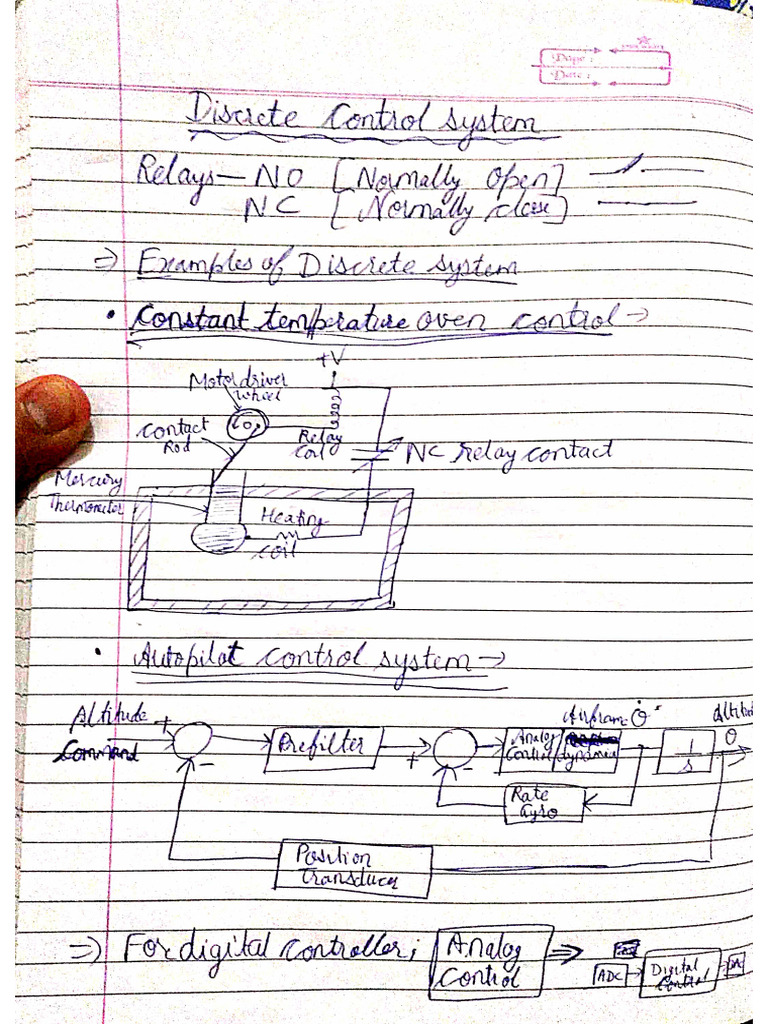 Page :
Date :
Discrete Control system
Relays — NO [Normally open]
NC [Normally close]
⇒ Examples of Discrete system
• Constant temperature oven control →
+V
Motor driver
wheel
Contact
Rod
Relay
coil
NC relay contact
Mercury
Thermometer
Heating
coil
• Autopilot control system →
Altitude
Command
+
-
Prefilter
+
-
Analog
Control
Airframe
dynamics
θ̇
1/s
Altitud
θ
Rate
Gyro
Position
Transducer
⇒ For digital controller;
Analog
Control
⇒
ADC
Digital
Control